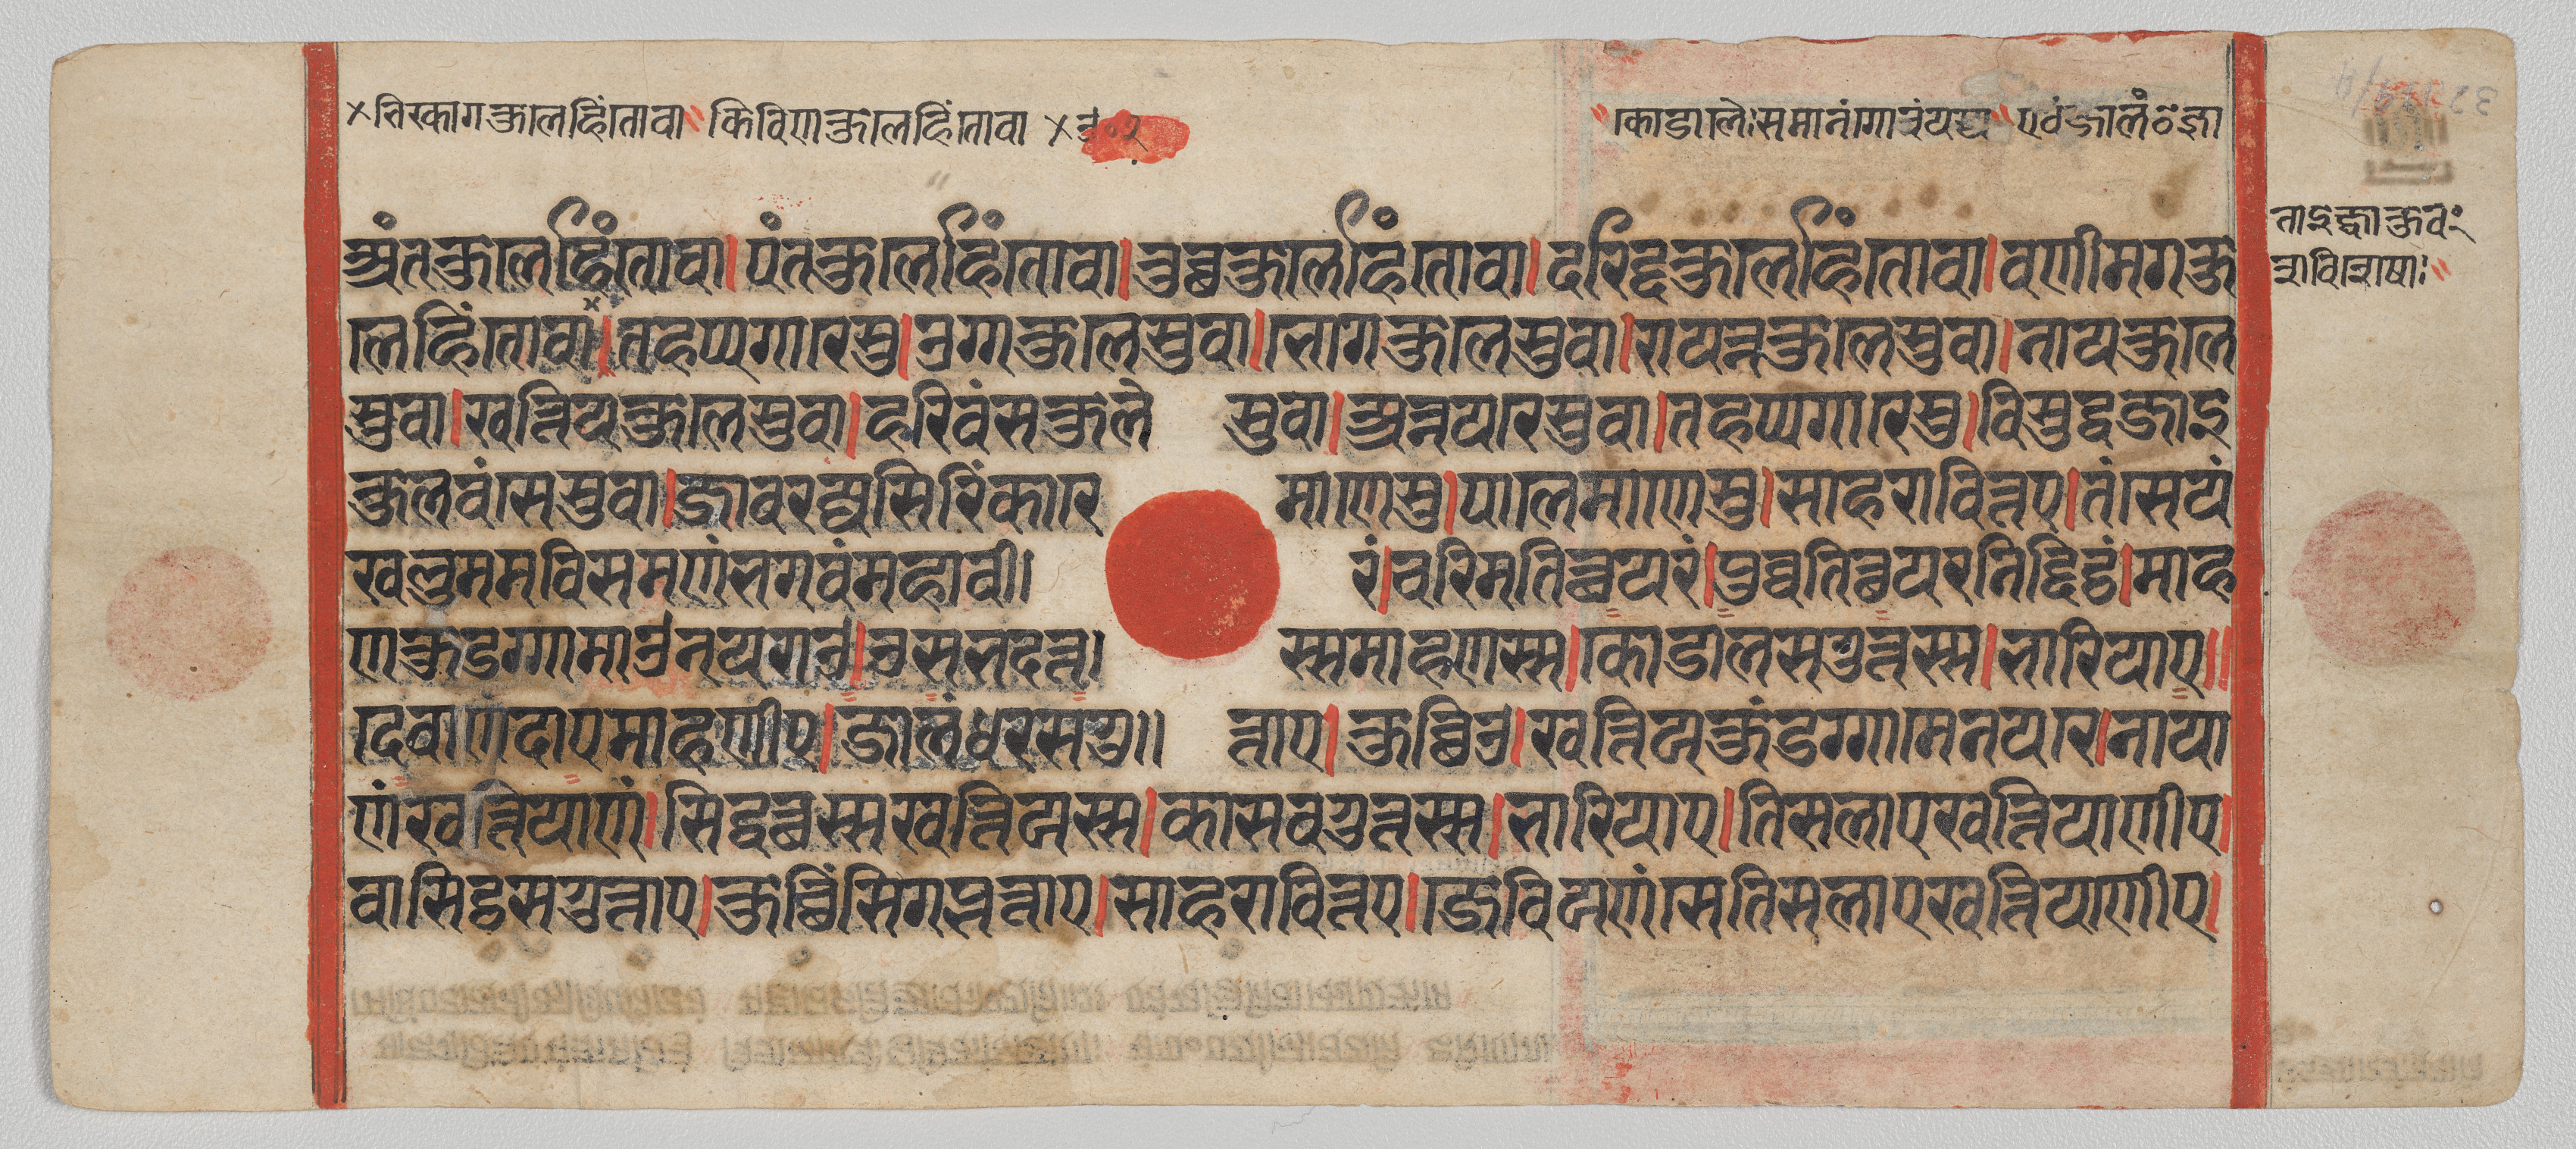 ×भिरकागकुलेहिंतो वा॥ किविणकुलेहिंतो वा ×
कोडालैः समानं गोत्रं यस्य॥ एवं जालं०
अंतकुलेहिंतो वा। पंतकुलेहिंतो वा। तुच्छकुलेहिंतो वा। दरिद्दकुलेहिंतो वा। वणीमगकु
लेहिंतो वा। तहप्पगारेसु। उग्गकुलेसु वा। भोगकुलेसु वा। रायन्नकुलेसु वा। नायकुले
सु वा। खत्तियकुलेसु वा। हरिवंसकुले सु वा। अन्नयरेसु वा। तहप्पगारेसु। विसुद्धजाइ
कुलवंसेसु वा। जाव रज्जसिरिं कारे माणेसु। पालेमाणेसु। साहरावित्तए। तं सेयं
खलु मम वि समणं भगवं महावी। रं। चरिमतित्थयरं। पुव्वतित्थयरनिद्दिट्ठं। माह
णकुंडग्गामाउ नयराउ। उसभदत्त। स्स माहणस्स। कोडालसगुत्तस्स। भारियाए॥
देवाणंदाए माहणीए। जालंधरसगु॥ त्ताए। कुच्छिउ। खत्तियकुंडग्गामे नयरे। नाया
णं खत्तियाणं। सिद्धत्थस्स खत्तियस्स। कासवगुत्तस्स। भारियाए। तिसलाए खत्तियाणीए।
वासिट्ठसगुत्ताए। कुच्छिंसि गब्भत्ताए। साहरावित्तए। जे वि य णं से तिसलाए खत्तियाणीए।